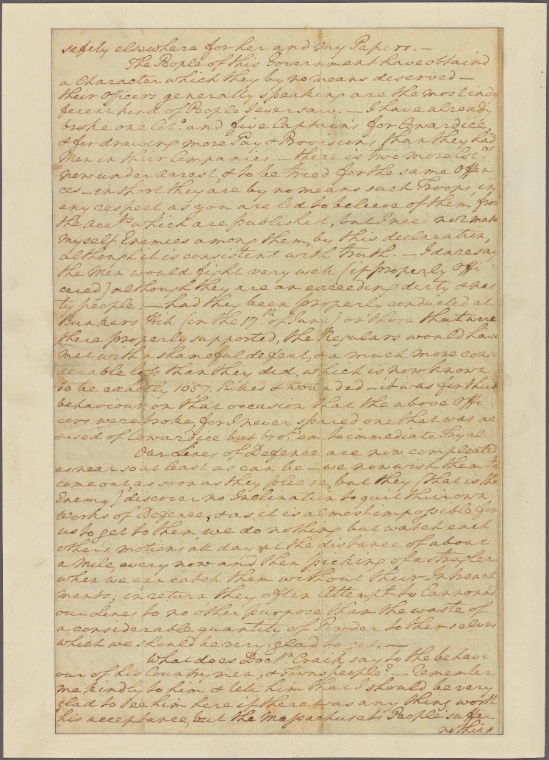 safely elsewhere for her and my Papers. —
The People of this Government have obtaind
a Character which they by no means deserved —
their Officers generally speaking are the most indif
ferent kind of People I ever saw. — I have already
broke one Colo. and five Captains for Cowardice,
& for drawing more Pay & Provisions than they had
Men in their Companies. — there is two more Colos.
now under arrest, & to be tried for the same Offen
ces — in short they are by no means such Troops, in
any respect, as you are led to believe of them from
the Accts. which are published, but I need not make
myself Enemies among them, by this declaration,
although it is consistent with truth. — I daresay
the Men would fight very well (if properly Offi
cered) although they are an exceeding dirty & nas
ty people. — had they been properly conducted at
Bunkers Hill (on the 17th. of June) or those that were
there properly supported, the Regulars would have
met with a shameful defeat, & a much more consi
derable loss than they did, which is now known
to be exactly 1057 killed & wounded — it was for their
behaviour on that occasion that the above Offi
cers were broke, for I never spared one that was ac
cused of Cowardice but brot. 'em to immediate Tryal.
Our Lines of Defence are now compleated
as near so at least as can be — we now wish them to
come out, as soon as they please, but they (that is the
Enemy) discover no Inclination to quit their own
Works of Defence, & as it is almost impossible for
us to get to them, we do nothing but watch each
other's motions all day at the distance of about
a Mile, every now and then picking of a stragler
when we can catch them without their Intrench
ments, in return they often Attempt to Cannonade
our Lines to no other purpose than the waste of
a considerable quantity of Powder to themselves
which we should be very glad to get. —
What does Doctr. Craik say to the behavi
our of his Countrymen, & Townspeople? — Remember
me kindly to him, & tell him that I should be very
glad to see him here if there was any thing worth
his acceptance, but the Massachusets People suffer
nothing